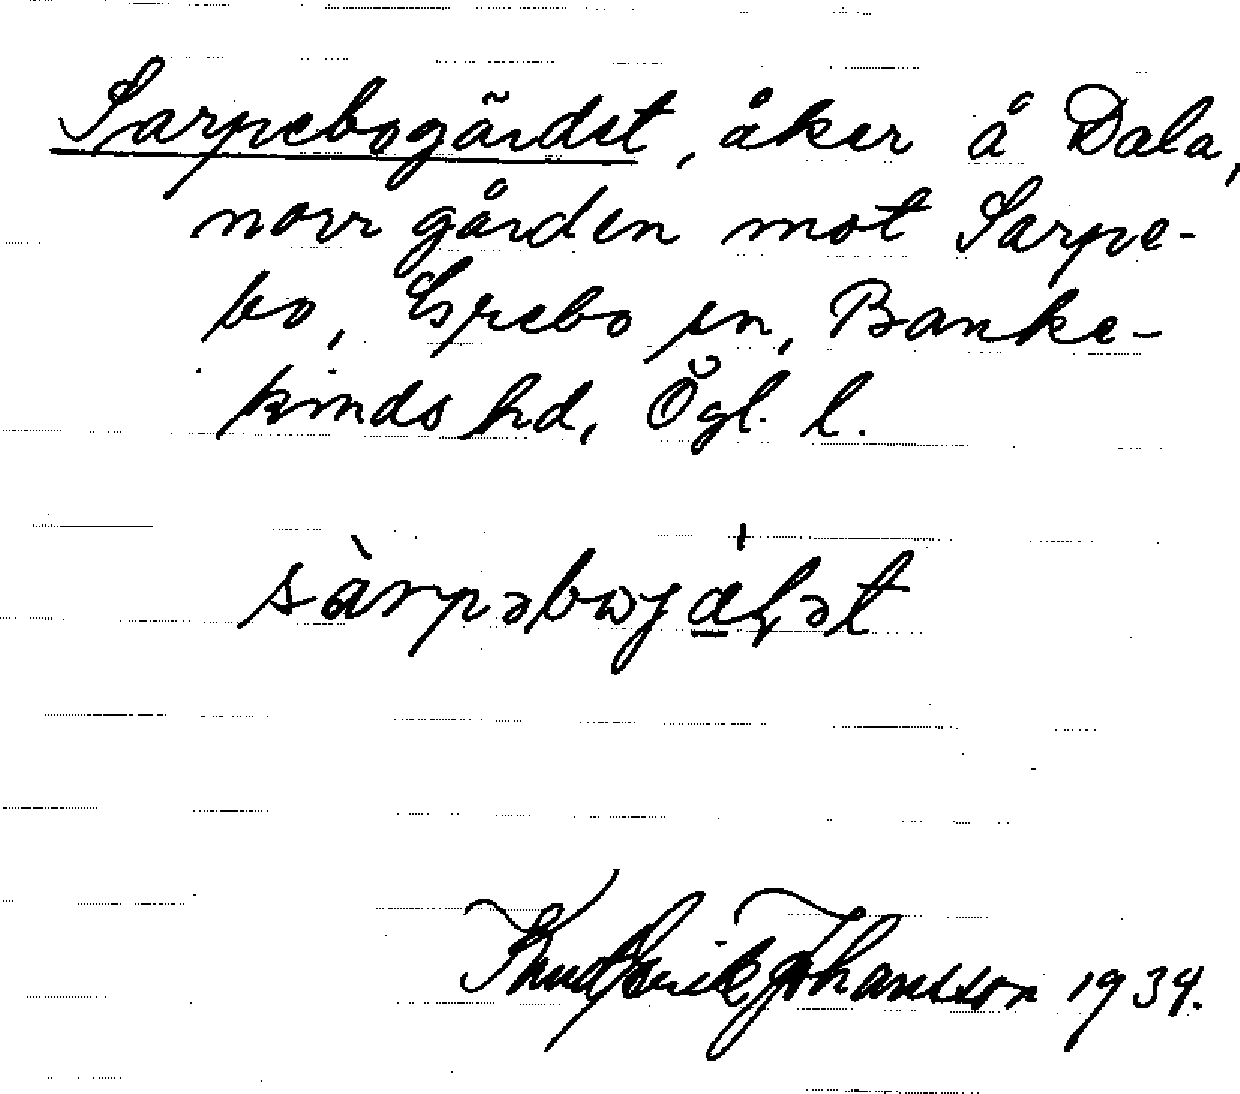 Sarpebogärdet, åker å Dala,
norrgården mot Sarpe-
bo, Grebo sn, Banke-
kinds hd, Ögl. l.
sàrpəbωja̱ḷət
Johansson 1934.